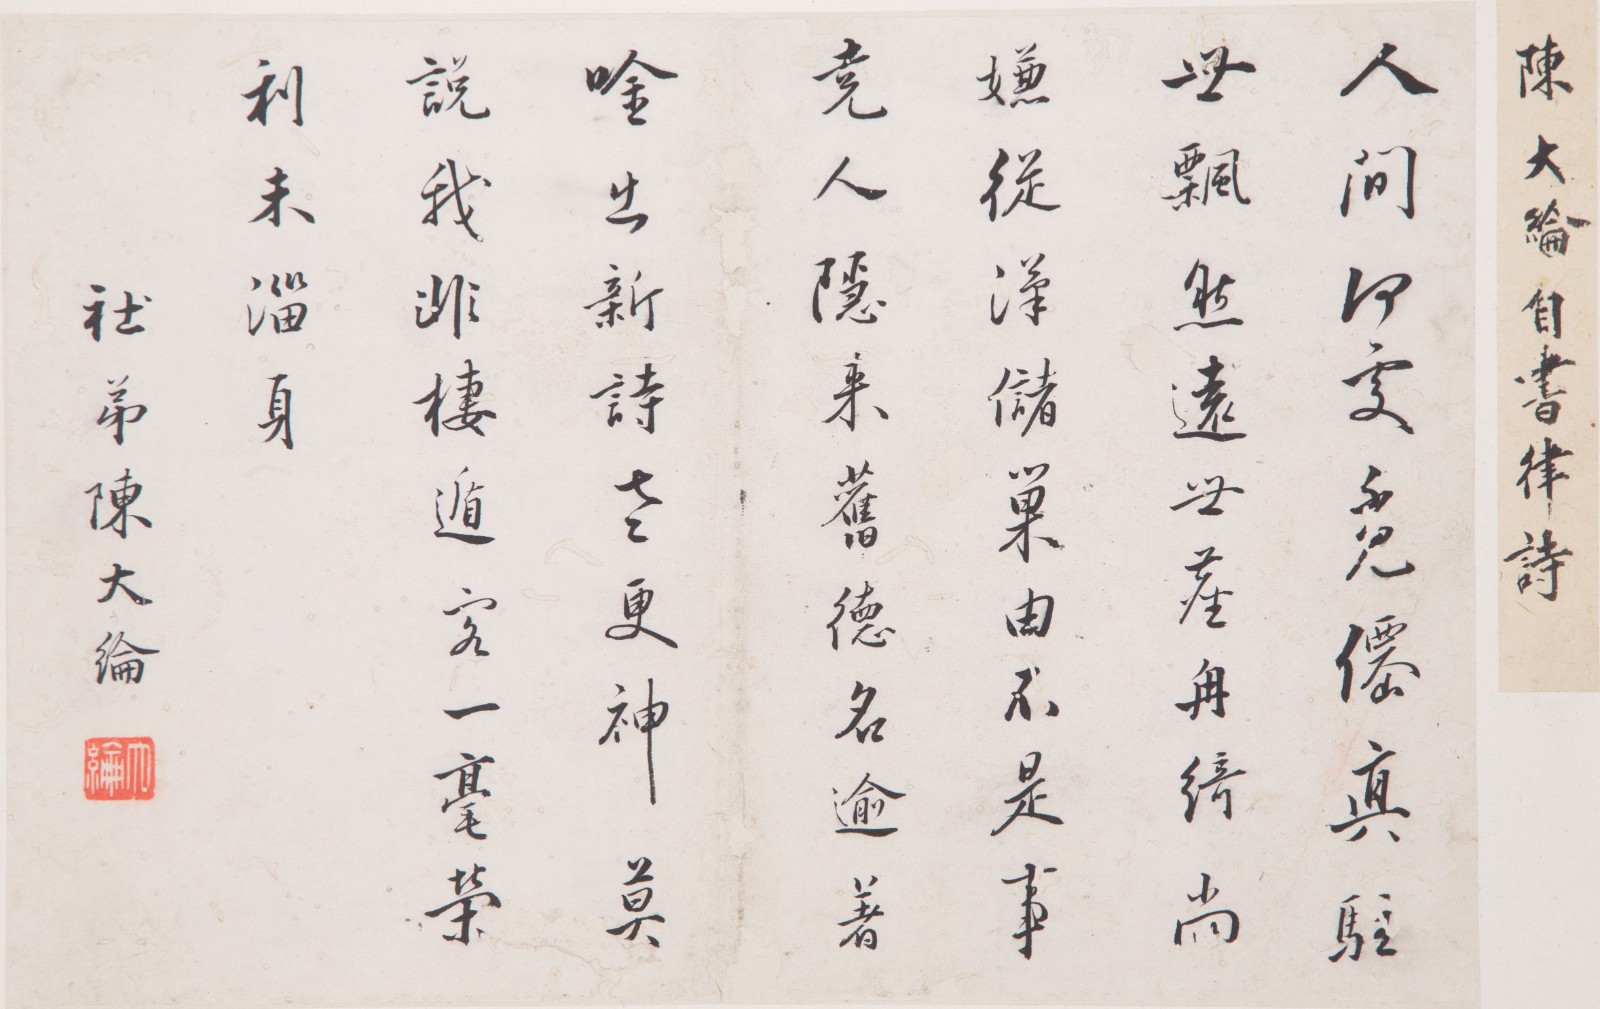 陳大綸自書律詩
人間何處覓僊真駐
世飄然遠世塵冉綺尚
嫌從漢儲巢由不是事
堯人隱來舊德名逾著
唫出新詩老更神莫
說我非棲遁客一毫榮
利未淄身
社弟陳大綸
大綸